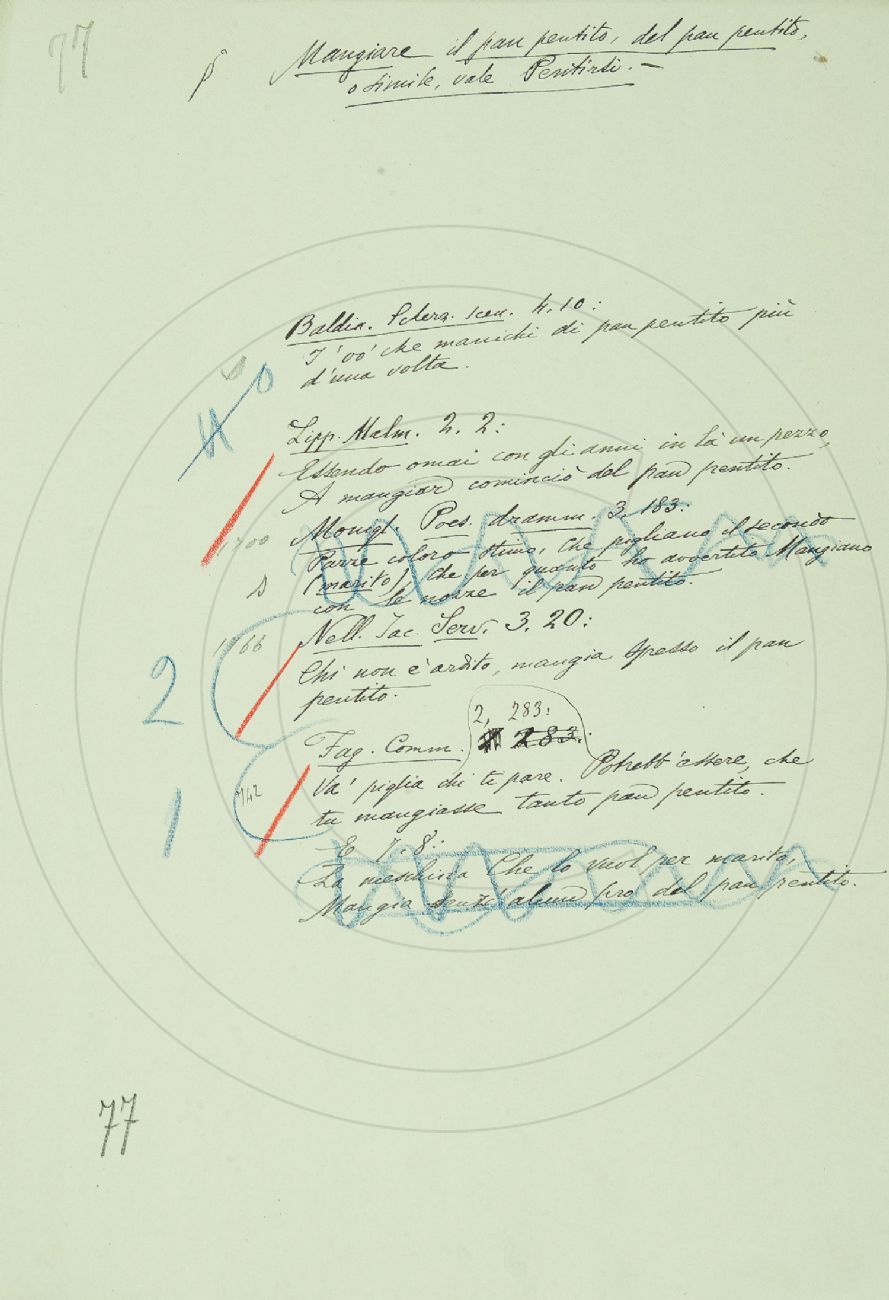 77
p°
Mangiare il pan pentito, del pan pentito,
o simile, vale Pentirsi. —
Baldin. Scherz. scen. 4. 10:
I' vo' che manichi di pan pentito più
d'una volta.
4
Lipp. Malm. 2. 2:
Essendo omai con gli anni in là un pezzo,
A mangiar cominciò del pan pentito.
1700
Monigl. Poes. dramm. 3. 183:
Parre coloro stimo, che pigliano il secondo
(marito), che per quanto ho avvertito Mangiano
con le nozze il pan pentito.
1766
Nell. Iac. Serv. 3. 20:
Chi non è ardito, mangia spesso il pan
pentito.
2
2, 283:
Fag. Comm.
742
Va' piglia chi ti pare. Potrebb'essere, che
tu mangiasse tanto pan pentito.
1
E 7. 8:
La meschina Che lo vuol per marito,
Mangia senza alcun pro del pan pentito.
77